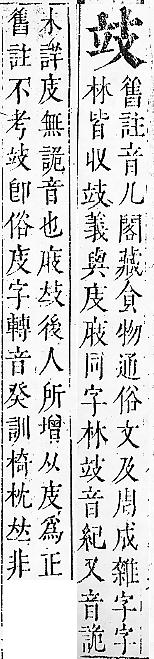 攱
舊註音几閣藏食物通俗文及周成雜字字
林皆収攱義與庋庪同字林攱音紀又音詭
未詳庋無詭音也庪攱後人所增从庋爲正
舊註不考攱卽俗庋字轉音癸訓椅枕𠀤非